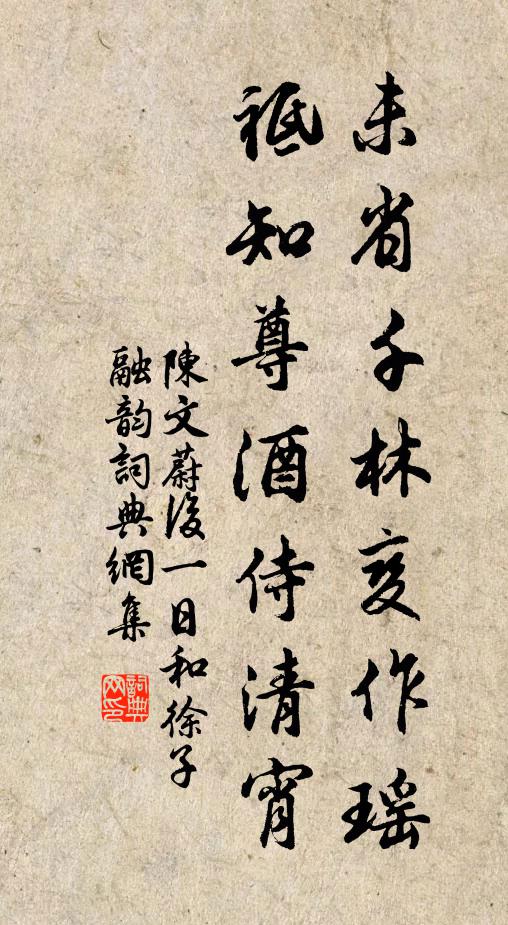 未省千林变作瑶
祗知尊酒侍清宵
陳文蔚後一日和徐子
融韵詞典網集
詞典
网印